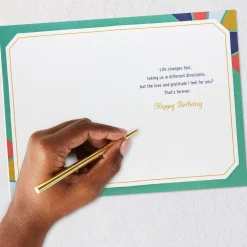 Life changes fast,
taking us in different directions,
but the love and gratitude I feel for you?
That's forever.
Happy Birthday